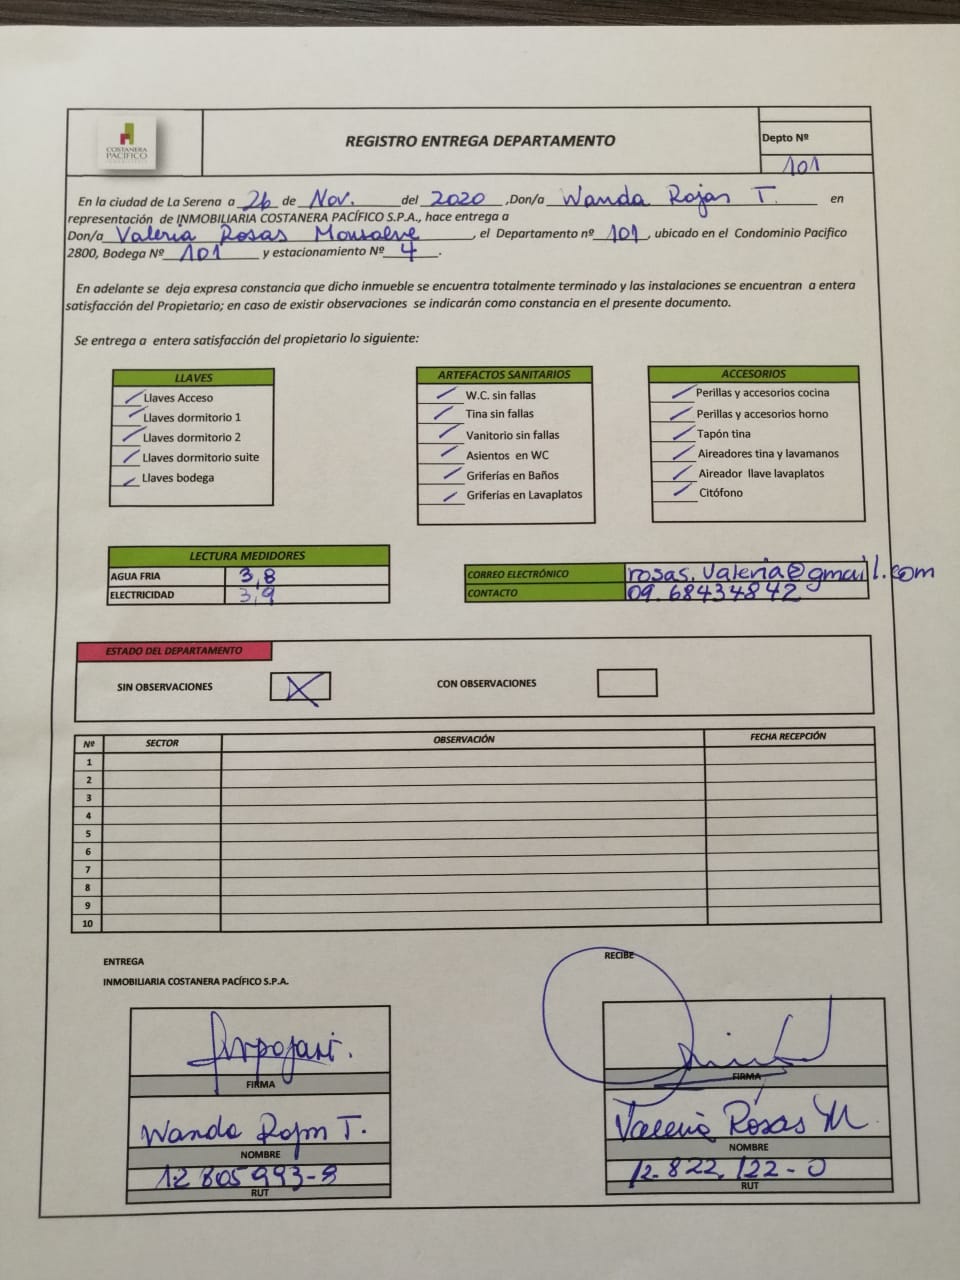 COSTANERA
PACÍFICO
REGISTRO ENTREGA DEPARTAMENTO
Depto Nº
101
En la ciudad de La Serena a 26 de Nov. del 2020 ,Don/a Wanda Rojas T. en
representación de INMOBILIARIA COSTANERA PACÍFICO S.P.A., hace entrega a
Don/a Valeria Rosas Monsalve, el Departamento nº 101, ubicado en el Condominio Pacifico
2800, Bodega Nº 101 y estacionamiento Nº 4.
En adelante se deja expresa constancia que dicho inmueble se encuentra totalmente terminado y las instalaciones se encuentran a entera
satisfacción del Propietario; en caso de existir observaciones se indicarán como constancia en el presente documento.
Se entrega a entera satisfacción del propietario lo siguiente:
LLAVES
Llaves Acceso
Llaves dormitorio 1
Llaves dormitorio 2
Llaves dormitorio suite
Llaves bodega
ARTEFACTOS SANITARIOS
W.C. sin fallas
Tina sin fallas
Vanitorio sin fallas
Asientos en WC
Griferías en Baños
Griferías en Lavaplatos
ACCESORIOS
Perillas y accesorios cocina
Perillas y accesorios horno
Tapón tina
Aireadores tina y lavamanos
Aireador llave lavaplatos
Citófono
LECTURA MEDIDORES
AGUA FRIA 3,8
ELECTRICIDAD 3,9
CORREO ELECTRÓNICO rosas.valeria@gmail.com
CONTACTO 09.68434842
ESTADO DEL DEPARTAMENTO
SIN OBSERVACIONES X CON OBSERVACIONES
Nº SECTOR OBSERVACIÓN FECHA RECEPCIÓN
1
2
3
4
5
6
7
8
9
10
ENTREGA
INMOBILIARIA COSTANERA PACÍFICO S.P.A.
FIRMA
Wanda Rojas T.
NOMBRE
12 805 993-8
RUT
RECIBE
FIRMA
Valeria Rosas M.
NOMBRE
12.822.122-0
RUT